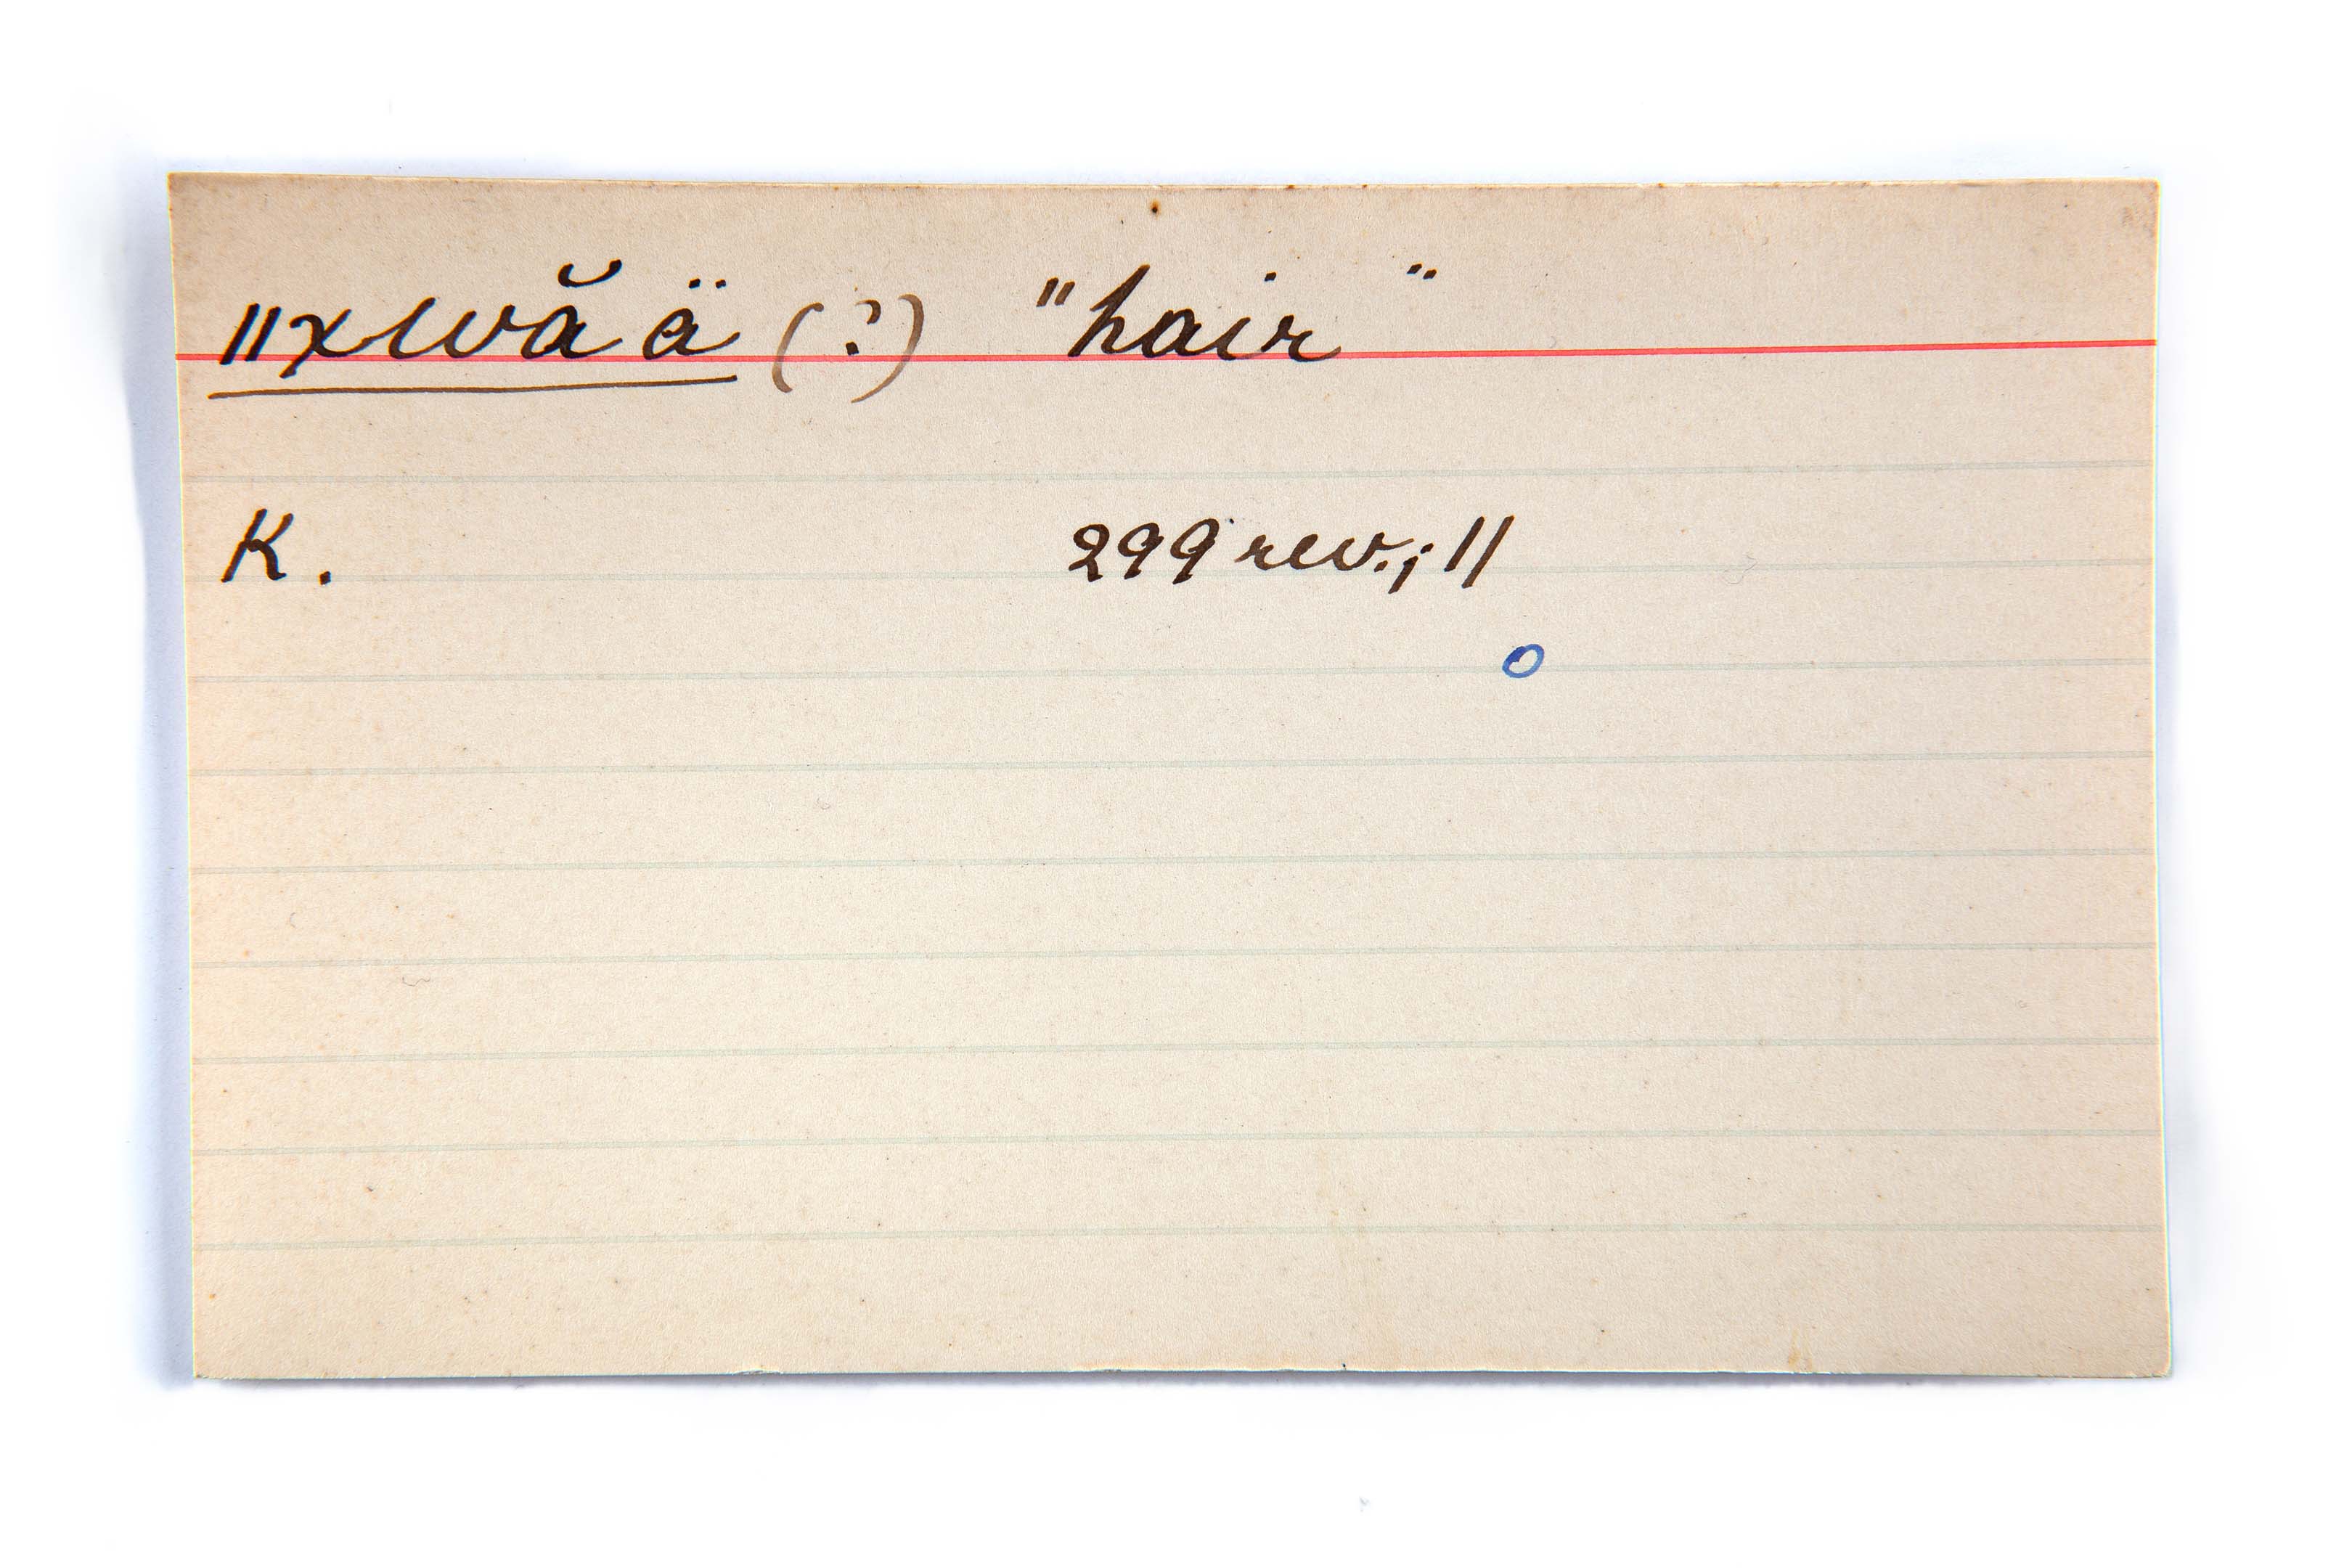 ǁxwă ä (?) "hair"
K. 299 rev.; 11
o